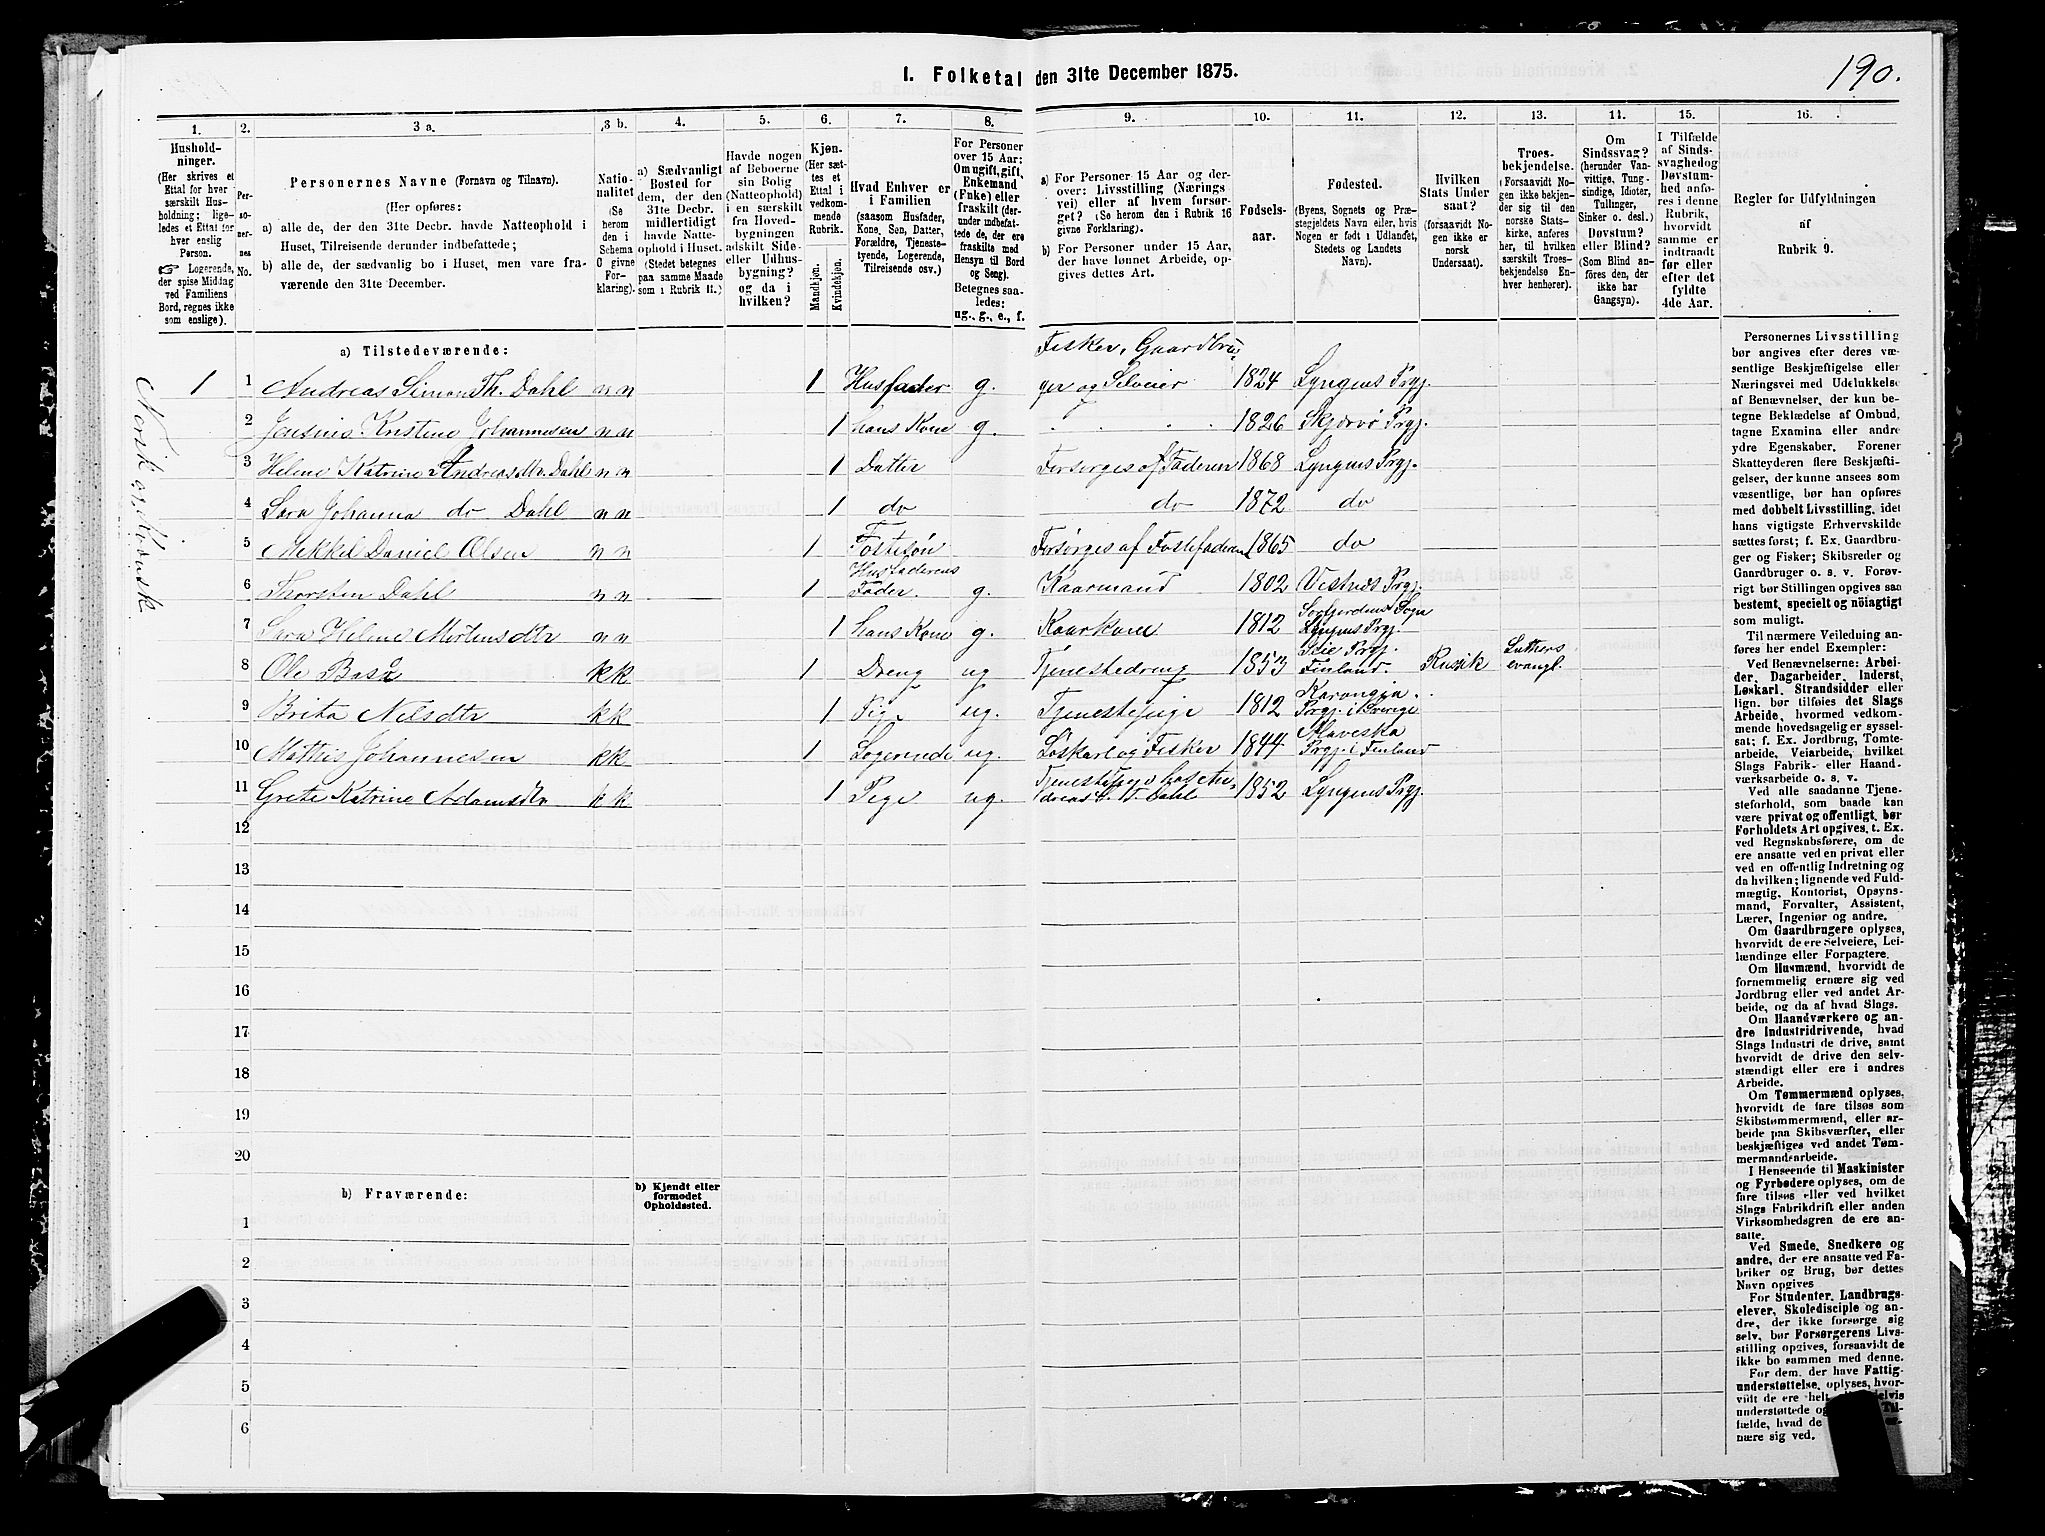 190.
I. Folketal den 31te December 1875.
1.
Husholdninger.
(Her skrives et
Ettal for hver
særskilt Husholdning; ligeledes
et Ettal for
hver enslig
Person.
☞ Logerende,
der spise Middag
ved Familiens
Bord, regnes ikke
som enslige).
2.
Personernes
No.
3 a.
Personernes Navne (Fornavn og Tilnavn).
(Her opføres:
a) alle de, der den 31te Decbr. havde Natteophold i
Huset, Tilreisende derunder indbefattede;
b) alle de, der sædvanlig bo i Huset, men vare fraværende
den 31te December.
3 b.
Nationalitet
(Se
herom
den i
Schema
O givne
Forklaring).
4.
a) Sædvanligt
Bosted for
dem, der den
31te Decbr.
midlertidigt
havde Natteophold
i Huset.
(Stedet betegnes
paa samme Maade
som i Rubrik 11.)
5.
Havde nogen
af Beboerne
sin Bolig
(Natteophold)
i en særskilt
fra Hovedbygningen
adskilt Side-
eller Udhusbygning?
og da i
hvilken?
6.
Kjøn.
(Her sættes
et
Ettal i
vedkommende
Rubrik.
Mandkjøn.
Kvindekjøn.
7.
Hvad Enhver er
i Familien
(saasom Husfader,
Kone, Søn, Datter,
Forældre, Tjenestetyende,
Logerende,
Tilreisende osv.)
8.
For Personer
over 15 Aar:
Om ugift, gift,
Enkemand
(Enke) eller
fraskilt (derunder
indbefattede
de, der ere
fraskilte med
Hensyn til Bord
og Seng).
Betegnes saaledes:
ug., g., e., f.
9.
a) For Personer 15 Aar og derover:
Livsstilling (Næringsvei)
eller af hvem forsørget?
(Se herom den i Rubrik 16
givne Forklaring).
b) For Personer under 15 Aar,
der have lønnet Arbeide, opgives
dettes Art.
10.
Fødselsaar.
11.
Fødested.
(Byens, Sognets og Præstegjeldets
Navn eller, hvis
Nogen er født i Udlandet,
Stedets og Landets
Navn).
12.
Hvilken
Stats Undersaat?
(forsaavidt Nogen
ikke er
norsk
Undersaat).
13.
Troesbekjendelse.
(Forsaavidt Nogen
ikke bekjender
sig til den
norske Statskirke,
anføres
her, til hvilken
særskilt Troesbekjendelse
Enhver
henhører).
11.
Om
Sindssvag?
(herunder Vanvittige,
Tungsindige,
Idioter,
Tullinger,
Sinker o. desl.)
Døvstum?
eller Blind?
(Som Blind anføres
den, der
ikke har
Gangsyn).
15.
I Tilfælde
af Sindssvaghed
og
Døvstumhed
anføres
i denne
Rubrik,
hvorvidt
samme er
indtraadt
før eller
efter det
fyldte
4de Aar.
16.
Regler for Udfyldningen
af
Rubrik 9.
Norsk og Kvænsk
a) Tilstedeværende:
1 1 Andreas Simon Th. Dahl n n 1 Husfader g. Fisker, Gaardbruger og Selveier 1824 Lyngens Prgj.
2 Jensine Kristine Johannesen n n 1 hans Kone g. 1826 Skjervø Prgj.
3 Helene Katrine Andreasdtr. Dahl n n 1 Datter Forsørges af Faderen 1868 Lyngens Prgj.
4 Sara Johanna do Dahl n n 1 do do 1872 do
5 Mikkel Daniel Olsen n n 1 Fostesøn Forsørges af Fostefaderen 1865 do
6 Thorsten Dahl n n 1 Husfaderens Fader. g. Kaarmand 1802 Vestnæs Prgj.
7 Sara Helene Mortensdtr n n 1 hans Kone g. Kaarkone 1812 Sørfjordens Sogn Lyngens Prgj.
8 Ole k k 1 Dreng ug Tjenestedreng 1853 Prgj. Finland. Russik Luthers evangl.
9 Brita Nilsdtr k k 1 Pige ug. Tjenestepige 1812 Karangia Prgj. i Sverige
10 Mathis Johannesen k k 1 Logerende ug. Løskarl og Fisker 1844 Prgj. i Finland
11 Grete Katrine Adamsdtr k k 1 Pige ug. Tjenestepige hos Andreas S. T. Dahl 1852 Lyngens Prgj.
12
13
14
15
16
17
18
19
20
b) Fraværende:
b) Kjendt eller
formodet
Opholdssted.
1
2
3
4
5
6
Personernes Livsstilling
bør angives efter deres væsentlige
Beskjæftigelse eller
Næringsvei med Udelukkelse
af Benævnelser, der kun betegne
Beklædelse af Ombud,
tagne Examina eller andre
ydre Egenskaber. Forener
Skatteyderen flere Beskjæftigelser,
der kunne ansees som
væsentlige, bør han opføres
med dobbelt Livsstilling, idet
hans vigtigste Erhvervskilde
sættes først; f. Ex. Gaardbruger
og Fisker; Skibsreder og
Gaardbruger o. s. v. Forøvrigt
bør Stillingen opgives saa
bestemt, specielt og nöiagtigt
som muligt.
Til nærmere Veiledning anføres
her endel Exempler:
Ved Benævnelserne: Arbeider,
Dagarbeider, Inderst,
Løskarl, Strandsidder eller
lign. bør tilføies det Slags
Arbeide, hvormed vedkommende
hovedsagelig er sysselsat;
f. Ex. Jordbrug, Tomtearbeide,
Veiarbeide, hvilket
Slags Fabrik- eller Haandværksarbeide
o. s. v.
Ved alle saadanne Tjenesteforhold,
som baade kan
være privat og offentligt, bør
Forholdets Art opgives, t. Ex.
ved Regnskabsførere, om de
ere ansatte ved en privat eller
ved en offentlig Indretning og
da hvilken; lignende ved Fuldmægtig,
Kontorist, Opsynsmand,
Forvalter, Assistent,
Lærer, Ingeniør og andre.
Om Gaardbrugere oplyses,
hvorvidt de ere Selveiere, Leilændinge
eller Forpagtere.
Om Husmænd, hvorvidt de
fornemmelig ernære sig ved
Jordbrug eller ved andet Arbeide,
og da af hvad Slags.
Om Haandværkere og andre
Industridrivende, hvad
Slags Industri de drive, samt
hvorvidt de drive den selvstændigt
eller ere i andres
Arbeide.
Om Tømmermænd oplyses,
hvorvidt de fare tilsøs som
Skibstømmermænd, eller arbeide
paa Skibsværfter, eller
beskjæftiges ved andet Tømmermandarbeide.
I Henseende til Maskinister
og Fyrbødere oplyses, om de
fare tilsøs eller ved hvilket
Slags Fabrikdrift eller anden
Virksomhedsgren de ere ansatte.
Ved Smede, Snedkere og
andre, der ere ansatte ved Fabriker
og Brug, bør dettes
Navn opgives
For Studenter, Landbrugselever,
Skoledisciple og andre,
der ikke forsørge sig
selv, bør Forsørgerens Livsstilling
opgives, forsaavidt de
ikke bo sammen med denne.
For dem, der have Fattigunderstøttelse,
oplyses, hvorvidt
de ere helt
understøttede